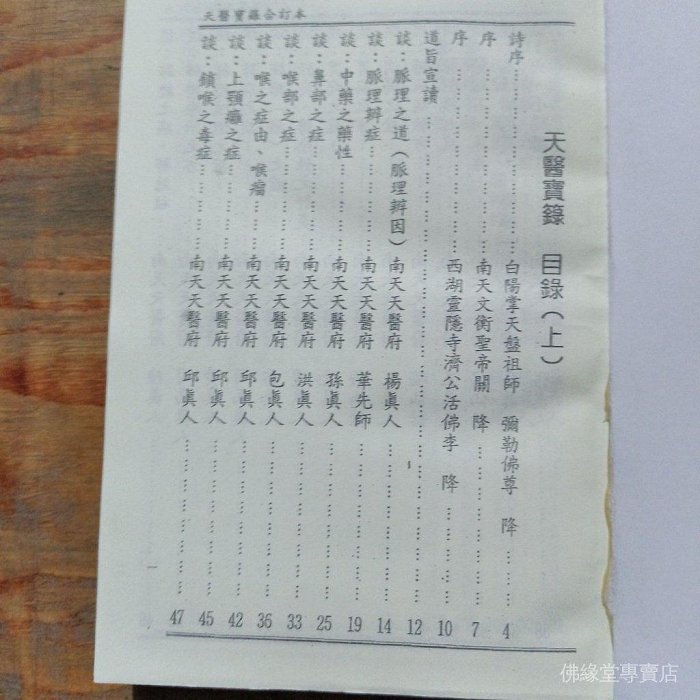 天醫寶籙合訂本
天醫寶籙 目錄(上)
詩序……………………白陽掌天盤祖師 彌勒佛尊 降………4
序……………………南天文衡聖帝關 降………………7
序……………………西湖靈隱寺濟公活佛李 降…………10
道旨宣讀………………………………………………12
談:脈理之道(脈理辨因)南天天醫府 楊眞人………………14
談:脈理辨症……………南天天醫府 華先師………………19
談:中藥之藥性…………南天天醫府 孫眞人………………25
談:鼻部之症……………南天天醫府 洪眞人………………33
談:喉部之症……………南天天醫府 包眞人………………36
談:喉之症由、喉瘤………南天天醫府 邱眞人………………42
談:上顎癰之症…………南天天醫府 邱眞人………………45
談:鎖喉之毒症…………南天天醫府 邱眞人………………47
一
佛緣堂專賣店